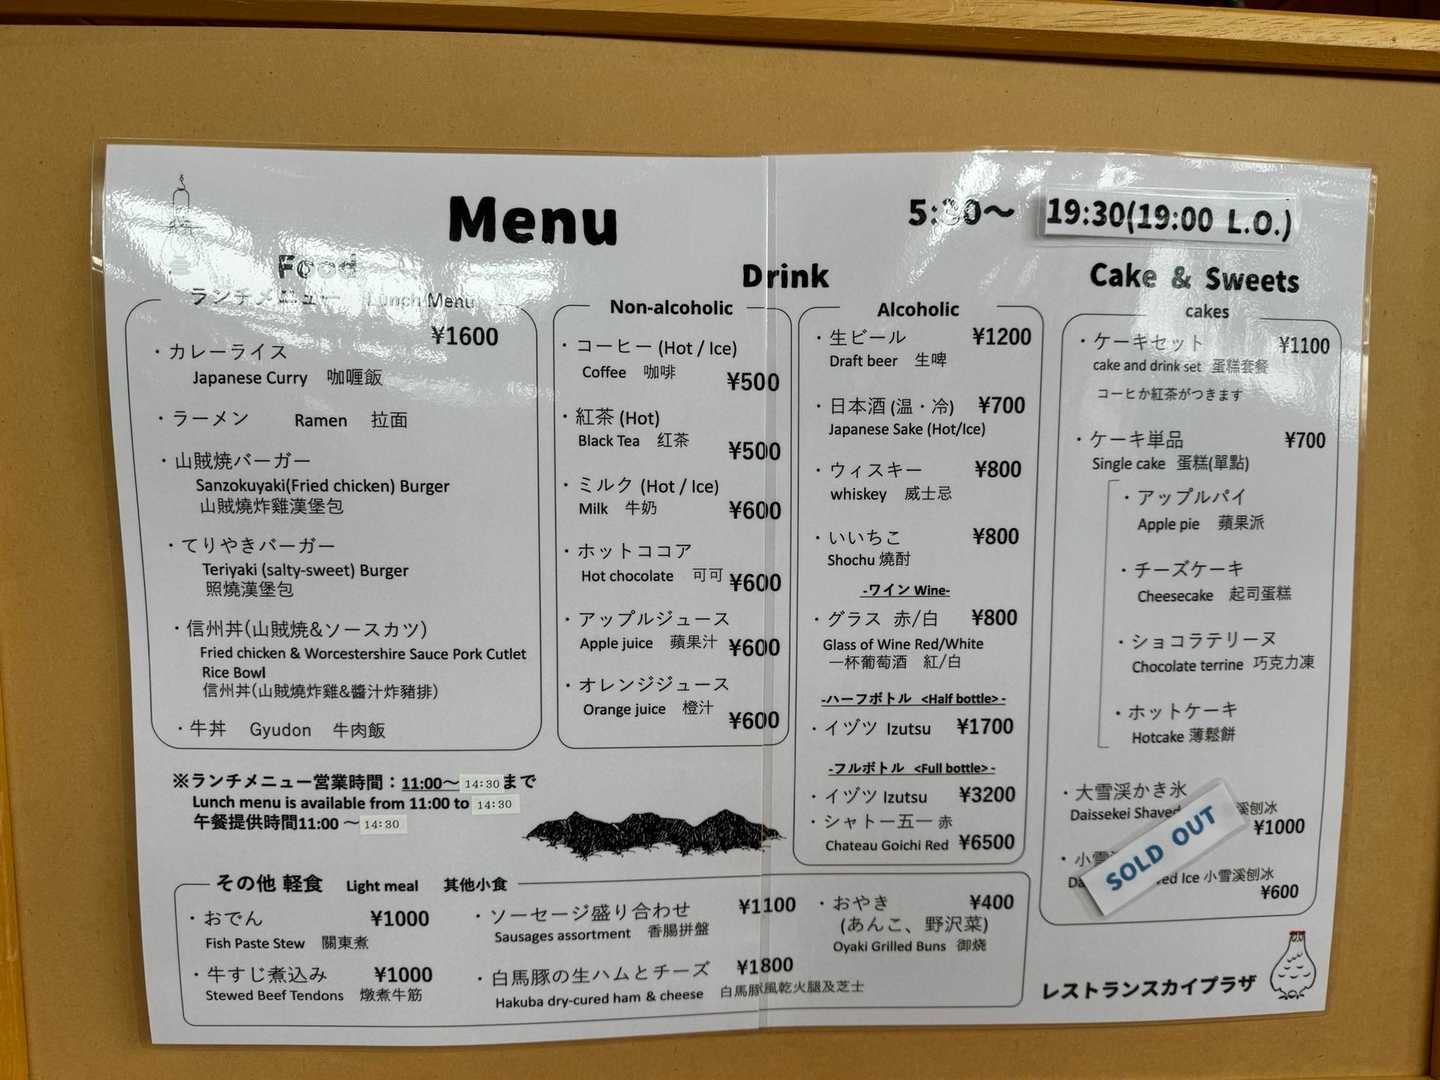 Menu
5:30～ 19:30(19:00 L.O.)
Food
ランチメニュー Lunch Menu
¥1600
・カレーライス
Japanese Curry 咖喱飯
・ラーメン Ramen 拉面
・山賊焼バーガー
Sanzokuyaki(Fried chicken) Burger
山賊燒炸雞漢堡包
・てりやきバーガー
Teriyaki (salty-sweet) Burger
照燒漢堡包
・信州丼(山賊焼&ソースカツ)
Fried chicken & Worcestershire Sauce Pork Cutlet
Rice Bowl
信州丼(山賊燒炸雞&醬汁炸豬排)
・牛丼 Gyudon 牛肉飯
※ランチメニュー営業時間：11:00～14:30まで
Lunch menu is available from 11:00 to 14:30
午餐提供時間11:00 ～14:30
Drink
Non-alcoholic
・コーヒー (Hot / Ice)
Coffee 咖啡 ¥500
・紅茶 (Hot)
Black Tea 红茶 ¥500
・ミルク (Hot / Ice)
Milk 牛奶 ¥600
・ホットココア
Hot chocolate 可可 ¥600
・アップルジュース
Apple juice 蘋果汁 ¥600
・オレンジジュース
Orange juice 橙汁 ¥600
Alcoholic
・生ビール ¥1200
Draft beer 生啤
・日本酒 (温・冷) ¥700
Japanese Sake (Hot/Ice)
・ウィスキー ¥800
whiskey 威士忌
・いいちこ ¥800
Shochu 燒酎
-ワイン Wine-
・グラス 赤/白 ¥800
Glass of Wine Red/White
一杯葡萄酒 紅/白
-ハーフボトル <Half bottle> -
・イヅツ Izutsu ¥1700
-フルボトル <Full bottle> -
・イヅツ Izutsu ¥3200
・シャトー五一 赤
Chateau Goichi Red ¥6500
Cake & Sweets
cakes
・ケーキセット ¥1100
cake and drink set 蛋糕套餐
コーヒか紅茶がつきます
・ケーキ単品 ¥700
Single cake 蛋糕(單點)
・アップルパイ
Apple pie 蘋果派
・チーズケーキ
Cheesecake 起司蛋糕
・ショコラテリーヌ
Chocolate terrine 巧克力凍
・ホットケーキ
Hotcake 薄鬆餅
・大雪渓かき氷
Daissekei Shaved 溪刨冰
¥1000
SOLD OUT
・小雪
Ice 小雪溪刨冰
¥600
その他 軽食 Light meal 其他小食
・おでん ¥1000
Fish Paste Stew 關東煮
・牛すじ煮込み ¥1000
Stewed Beef Tendons 燉煮牛筋
・ソーセージ盛り合わせ ¥1100
Sausages assortment 香腸拼盤
・白馬豚の生ハムとチーズ ¥1800
Hakuba dry-cured ham & cheese 白馬豚風乾火腿及芝士
・おやき ¥400
(あんこ、野沢菜)
Oyaki Grilled Buns 御烧
レストランスカイプラザ